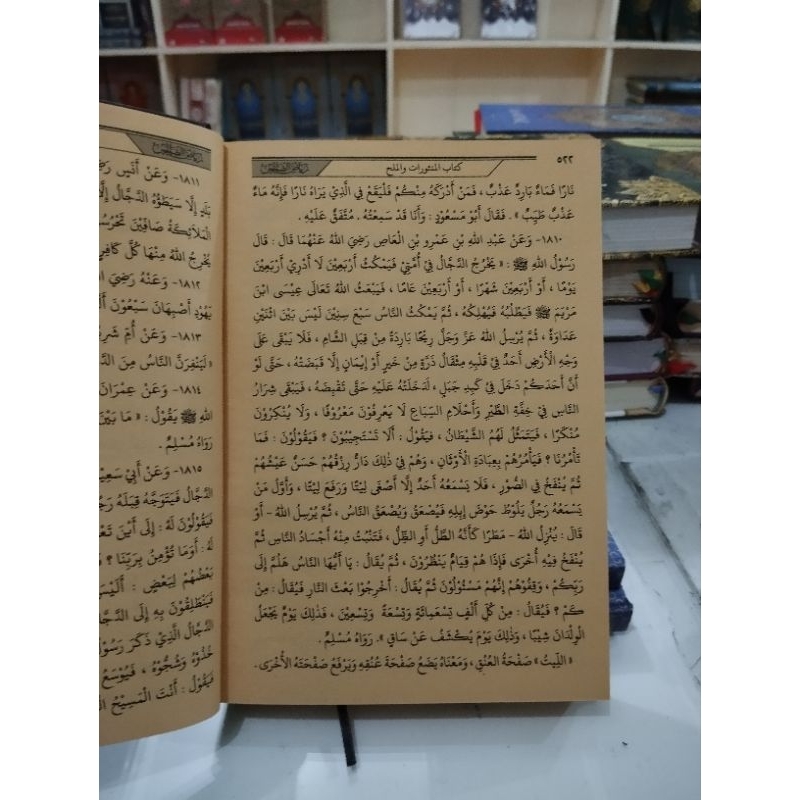 ٥٢٢
كتاب المنثورات والملح
رياض الصالحين
نَارًا فَمَاءٌ بَارِدٌ عَذْبٌ ، فَمَنْ أَدْرَكَهُ مِنْكُمْ فَلْيَقَعْ فِي الَّذِي يَرَاهُ نَارًا فَإِنَّهُ مَاءٌ
عَذْبٌ طَيِّبٌ » . فَقَالَ أَبُو مَسْعُودٍ : وَأَنَا قَدْ سَمِعْتُهُ . مُتَّفَقٌ عَلَيْهِ .
١٨١٠- وَعَنْ عَبْدِ اللهِ بْنِ عَمْرِو بْنِ الْعَاصِ رَضِيَ اللهُ عَنْهُمَا قَالَ : قَالَ
رَسُولُ اللهِ ﷺ : « يَخْرُجُ الدَّجَّالُ فِي أُمَّتِي فَيَمْكُثُ أَرْبَعِينَ لَا أَدْرِي أَرْبَعِينَ
يَوْمًا ، أَوْ أَرْبَعِينَ شَهْرًا ، أَوْ أَرْبَعِينَ عَامًا ، فَيَبْعَثُ اللهُ تَعَالَى عِيسَى ابْنَ
مَرْيَمَ ﷺ فَيَطْلُبُهُ فَيُهْلِكُهُ ، ثُمَّ يَمْكُثُ النَّاسُ سَبْعَ سِنِينَ لَيْسَ بَيْنَ اثْنَيْنِ
عَدَاوَةٌ ، ثُمَّ يُرْسِلُ اللهُ عَزَّ وَجَلَّ رِيحًا بَارِدَةً مِنْ قِبَلِ الشَّامِ ، فَلَا يَبْقَى عَلَى
وَجْهِ الْأَرْضِ أَحَدٌ فِي قَلْبِهِ مِثْقَالُ ذَرَّةٍ مِنْ خَيْرٍ أَوْ إِيمَانٍ إِلَّا قَبَضَتْهُ ، حَتَّى لَوْ
أَنَّ أَحَدَكُمْ دَخَلَ فِي كَبِدِ جَبَلٍ ، لَدَخَلَتْهُ عَلَيْهِ حَتَّى تَقْبِضَهُ ، فَيَبْقَى شِرَارُ
النَّاسِ فِي خِفَّةِ الطَّيْرِ وَأَحْلَامِ السِّبَاعِ لَا يَعْرِفُونَ مَعْرُوفًا ، وَلَا يُنْكِرُونَ
مُنْكَرًا ، فَيَتَمَثَّلُ لَهُمُ الشَّيْطَانُ ، فَيَقُولُ : أَلَا تَسْتَجِيبُونَ ؟ فَيَقُولُونَ : فَمَا
تَأْمُرُنَا ؟ فَيَأْمُرُهُمْ بِعِبَادَةِ الْأَوْثَانِ ، وَهُمْ فِي ذٰلِكَ دَارٌّ رِزْقُهُمْ حَسَنٌ عَيْشُهُمْ
ثُمَّ يُنْفَخُ فِي الصُّورِ ، فَلَا يَسْمَعُهُ أَحَدٌ إِلَّا أَصْغَى لِيْتًا وَرَفَعَ لِيْتًا ، وَأَوَّلُ مَنْ
يَسْمَعُهُ رَجُلٌ يَلُوطُ حَوْضَ إِبِلِهِ فَيُصْعَقُ وَيُصْعَقُ النَّاسُ ، ثُمَّ يُرْسِلُ اللهُ - أَوْ
قَالَ : يُنْزِلُ اللهُ - مَطَرًا كَأَنَّهُ الطَّلُّ أَوِ الظِّلُّ ، فَتَنْبُتُ مِنْهُ أَجْسَادُ النَّاسِ ثُمَّ
يُنْفَخُ فِيهِ أُخْرَى فَإِذَا هُمْ قِيَامٌ يَنْظُرُونَ ، ثُمَّ يُقَالُ : يَا أَيُّهَا النَّاسُ هَلُمَّ إِلَى
رَبِّكُمْ ، وَقِفُوهُمْ إِنَّهُمْ مَسْئُولُونَ ثُمَّ يُقَالُ : أَخْرِجُوا بَعْثَ النَّارِ فَيُقَالُ : مِنْ
كَمْ ؟ فَيُقَالُ : مِنْ كُلِّ أَلْفٍ تِسْعَمِائَةٍ وَتِسْعَةً وَتِسْعِينَ ، فَذٰلِكَ يَوْمٌ يَجْعَلُ
الْوِلْدَانَ شِيبًا ، وَذٰلِكَ يَوْمَ يُكْشَفُ عَنْ سَاقٍ » . رَوَاهُ مُسْلِمٌ .
« اللِّيتُ » صَفْحَةُ الْعُنُقِ ، وَمَعْنَاهُ يَضَعُ صَفْحَةَ عُنُقِهِ وَيَرْفَعُ صَفْحَتَهُ الْأُخْرَى .
رياض الصالحين
١٨١١- وَعَنْ أَنَسٍ رَضِيَ
بَلَدٍ إِلَّا سَيَطَؤُهُ الدَّجَّالُ إِلَّا
الْمَلَائِكَةُ صَافِّينَ تَحْرُسُ
يُخْرِجُ اللهُ مِنْهَا كُلَّ كَافِرٍ
١٨١٢- وَعَنْهُ رَضِيَ اللهُ
يَهُودِ أَصْبَهَانَ سَبْعُونَ أَلْ
١٨١٣- وَعَنْ أُمِّ شَرِي
« لَيَنْفِرَنَّ النَّاسُ مِنَ الدَّجَّ
١٨١٤- وَعَنْ عِمْرَانَ
اللهِ ﷺ يَقُولُ : « مَا بَيْنَ
رَوَاهُ مُسْلِمٌ .
١٨١٥- وَعَنْ أَبِي سَعِيدٍ
الدَّجَّالُ فَيَتَوَجَّهُ قِبَلَهُ رَجُلٌ
فَيَقُولُونَ لَهُ : إِلَى أَيْنَ تَعْ
لَهُ : أَوَمَا تُؤْمِنُ بِرَبِّنَا ؟ فَ
بَعْضُهُمْ لِبَعْضٍ : أَلَيْسَ
فَيَنْطَلِقُونَ بِهِ إِلَى الدَّجَّ
الدَّجَّالُ الَّذِي ذَكَرَ رَسُولُ
خُذُوهُ وَشُجُّوهُ ، فَيُوسَعُ
فَيَقُولُ : أَنْتَ الْمَسِيحُ